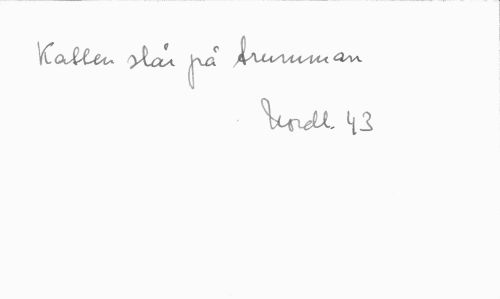 Katten slår på trumman
Nordl. 43